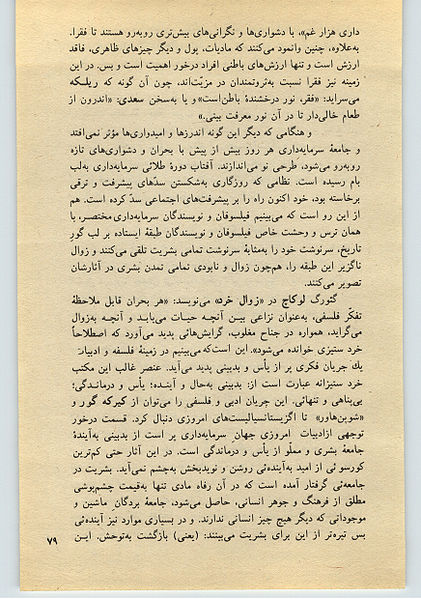 داری هزار غم»، با دشواری‌ها و نگرانی‌های بیش‌تری روبه‌رو هستند تا فقرا.
به‌علاوه، چنین وانمود می‌کنند که مادیات، پول و دیگر چیزهای ظاهری، فاقد
ارزش است و تنها ارزش‌های باطنی افراد درخور اهمیت است و بس. در این
زمینه نیز فقرا نسبت به‌ثروتمندان در مزیّت‌اند، چون آن گونه که ریلـکه
می‌سراید: «فقر، نور درخشندهٔ باطن‌است» و یا به‌سخن سعدی: «اندرون از
طعام خالی‌دار تا در آن نور معرفت بینی.»
و هنگامی که دیگر این گونه اندرزها و امیدواری‌ها مؤثر نمی‌افتد
و جامعهٔ سرمایه‌داری هر روز بیش از پیش با بحران و دشواری‌های تازه
روبه‌رو می‌شود، طرحی نو می‌اندازند. آفتاب دورهٔ طلائی سرمایه‌داری به‌لب
بام رسیده است. نظامی که روزگاری به‌شکستن سدّهای پیشرفت و ترقی
برخاسته بود، خود اکنون راه را بر پیشرفت‌های اجتماعی سدّ کرده است. هم
از این رو است که می‌بینیم فیلسوفان و نویسندگان سرمایه‌داری مختضـر، با
همان ترس و وحشت خاص فیلسوفان و نویسندگان طبقهٔ ایستاده بر لب گورِ
تاریخ، سرنوشت خود را به‌مثابهٔ سرنوشت تمامی بشریت تلقی می‌کنند و زوال
ناگزیر این طبقه را، هم‌چون زوال و نابودی تمامی تمدن بشری در آثارشان
تصویر می‌کنند.
گئورگ لوکاچ در «زوال خرد» می‌نویسد: «هر بحران قابل ملاحظهٔ
تفکّر فلسفی، به‌عنوان نزاعی بیـن آنچـه حیـات می‌یابـد و آنچـه به‌زوال
می‌گراید، همواره در جناح مغلوب، گرایش‌هائی پدید می‌آورد که اصطلاحاً
خرد ستیزی خوانده می‌شود». این است‌که می‌بینیم در زمینهٔ فلسفه و ادبیات
یك جریان فکری پر از یأس و بدبینی پدید می‌آید. عنصر غالب این مکتب
خرد ستیزانه عبارت است از: بدبینی به‌حال و آینده؛ یأس و درماندگی؛
بی‌پناهی و تنهائی. این جریان ادبی و فلسفی را می‌توان از کیرکه گور و
«شوپن‌هاور» تا اگزیستانسیالیست‌های امروزی دنبال کرد. قسمت درخور
توجهی ازادبیات امروزی جهان سرمایه‌داری پر است از بدبینی به‌آیندهٔ
جامعهٔ بشری و مملّو از یأس و درماندگی است. در این آثار حتی کم‌ترین
کورسوئی از امید به‌آینده‌ئی روشن و نویدبخش به‌چشم نمی‌آید. بشریت در
جامعه‌ئی گرفتار آمده است که در آن رفاه مادی تنها به‌قیمت چشم‌پوشی
مطلق از فرهنگ و جوهر انسانی، حاصل می‌شود، جامعهٔ بردگان ماشین و
موجوداتی که دیگر هیچ چیز انسانی ندارند. و در بسیاری موارد نیز آینده‌ئی
بس تیره‌تر از این برای بشریت می‌بینند: (یعنی) بازگشت به‌توحش. ایـن
۷۹